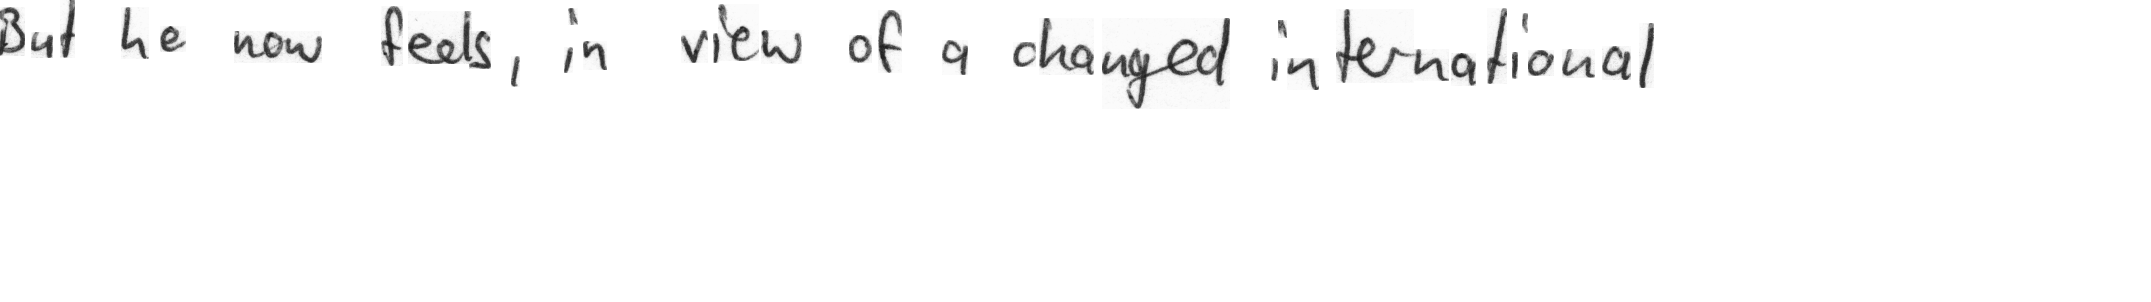 But he now feels, in view of a changed international